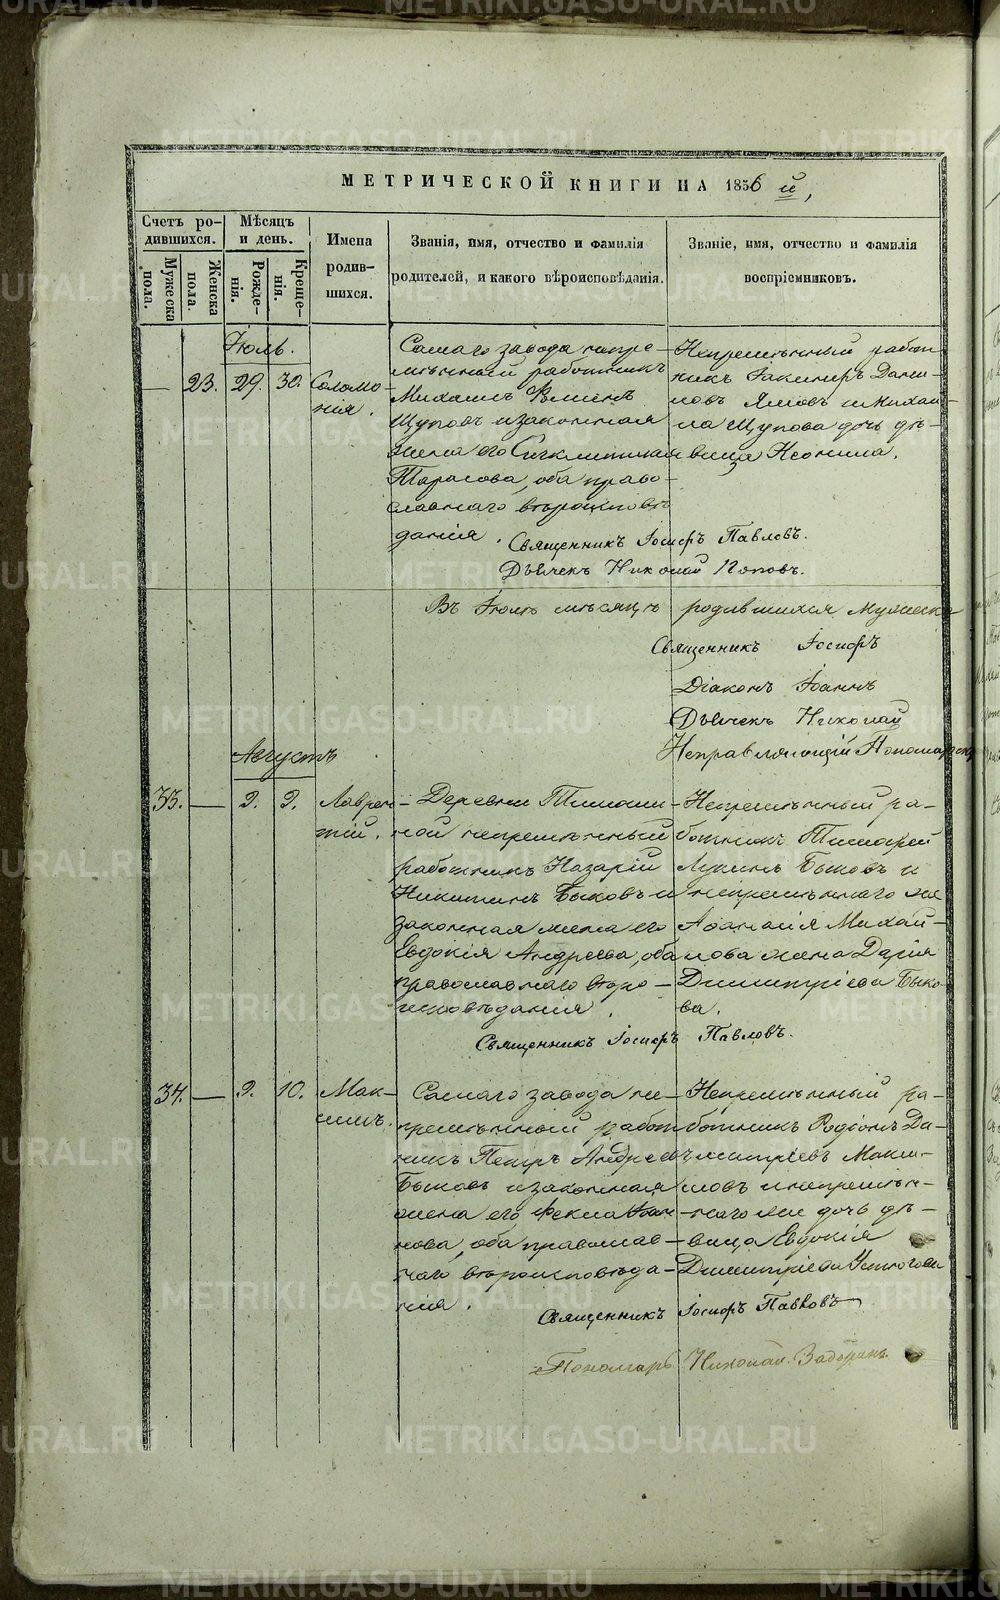 METRIKI.GASO-URAL.RU
МЕТРИЧЕСКОЙ КНИГИ НА 1856 й,
Счетъ ро-
дившихся.
Мужеска
пола.
Женска
пола.
Мѣсяцъ
и день.
Рожде-
нія.
Креще-
нія.
Имена
родив-
шихся.
Званія, имя, отчество и фамилія
родителей, и какого вѣроисповѣданія.
Званіе, имя, отчество и фамилія
воспріемниковъ.
Іюль.
— 23. 29. 30. Соломо-
нія.
Самаго завода непре-
мѣнный работникъ
Михаилъ
Щуповъ и законная
жена его Сигклитикія
Тарасова, оба право-
славнаго вѣроисповѣ
данія.
Непремѣнный работ-
никъ Іакинѳъ Дани-
ловъ и Михаи-
ла Щупова дочь дѣ-
вица Неонила.
Священникъ Іосифъ Павловъ.
Дьячекъ Николай Поповъ.
Въ Іюлѣ мѣсяцѣ родившихся Мужеска
Священникъ Іосифъ
Діаконъ Іоаннъ
Дьячекъ Николай
Исправляющій Пономарск
Августъ
33. — 9. 9. Лаврен-
тій.
Деревни
ной непремѣнный
работникъ Назарій
Никитинъ Быковъ и
законная жена его
Евдокія Андреева, оба
православнаго вѣро-
исповѣданія.
Непремѣнный ра-
ботникъ Тимофей
Лукинъ Быковъ и
непремѣннаго же
Аѳанасія Михай-
лова жена Дарія
Димитріева Быко-
ва.
Священникъ Іосифъ Павловъ.
34. — 9. 10. Мак-
симъ.
Самаго завода не-
премѣнный работ
никъ Петръ Андреевъ
Быковъ и законная
жена его Фекла
нова, оба православ-
наго вѣроисповѣда-
нія.
Непремѣнный ра-
ботникъ Родіонъ Ди-
митріевъ Макси-
мовъ и непремѣн-
наго же дочь дѣ-
вица Евдокія
Димитріева
Священникъ Іосифъ Павловъ
Пономарь Николай